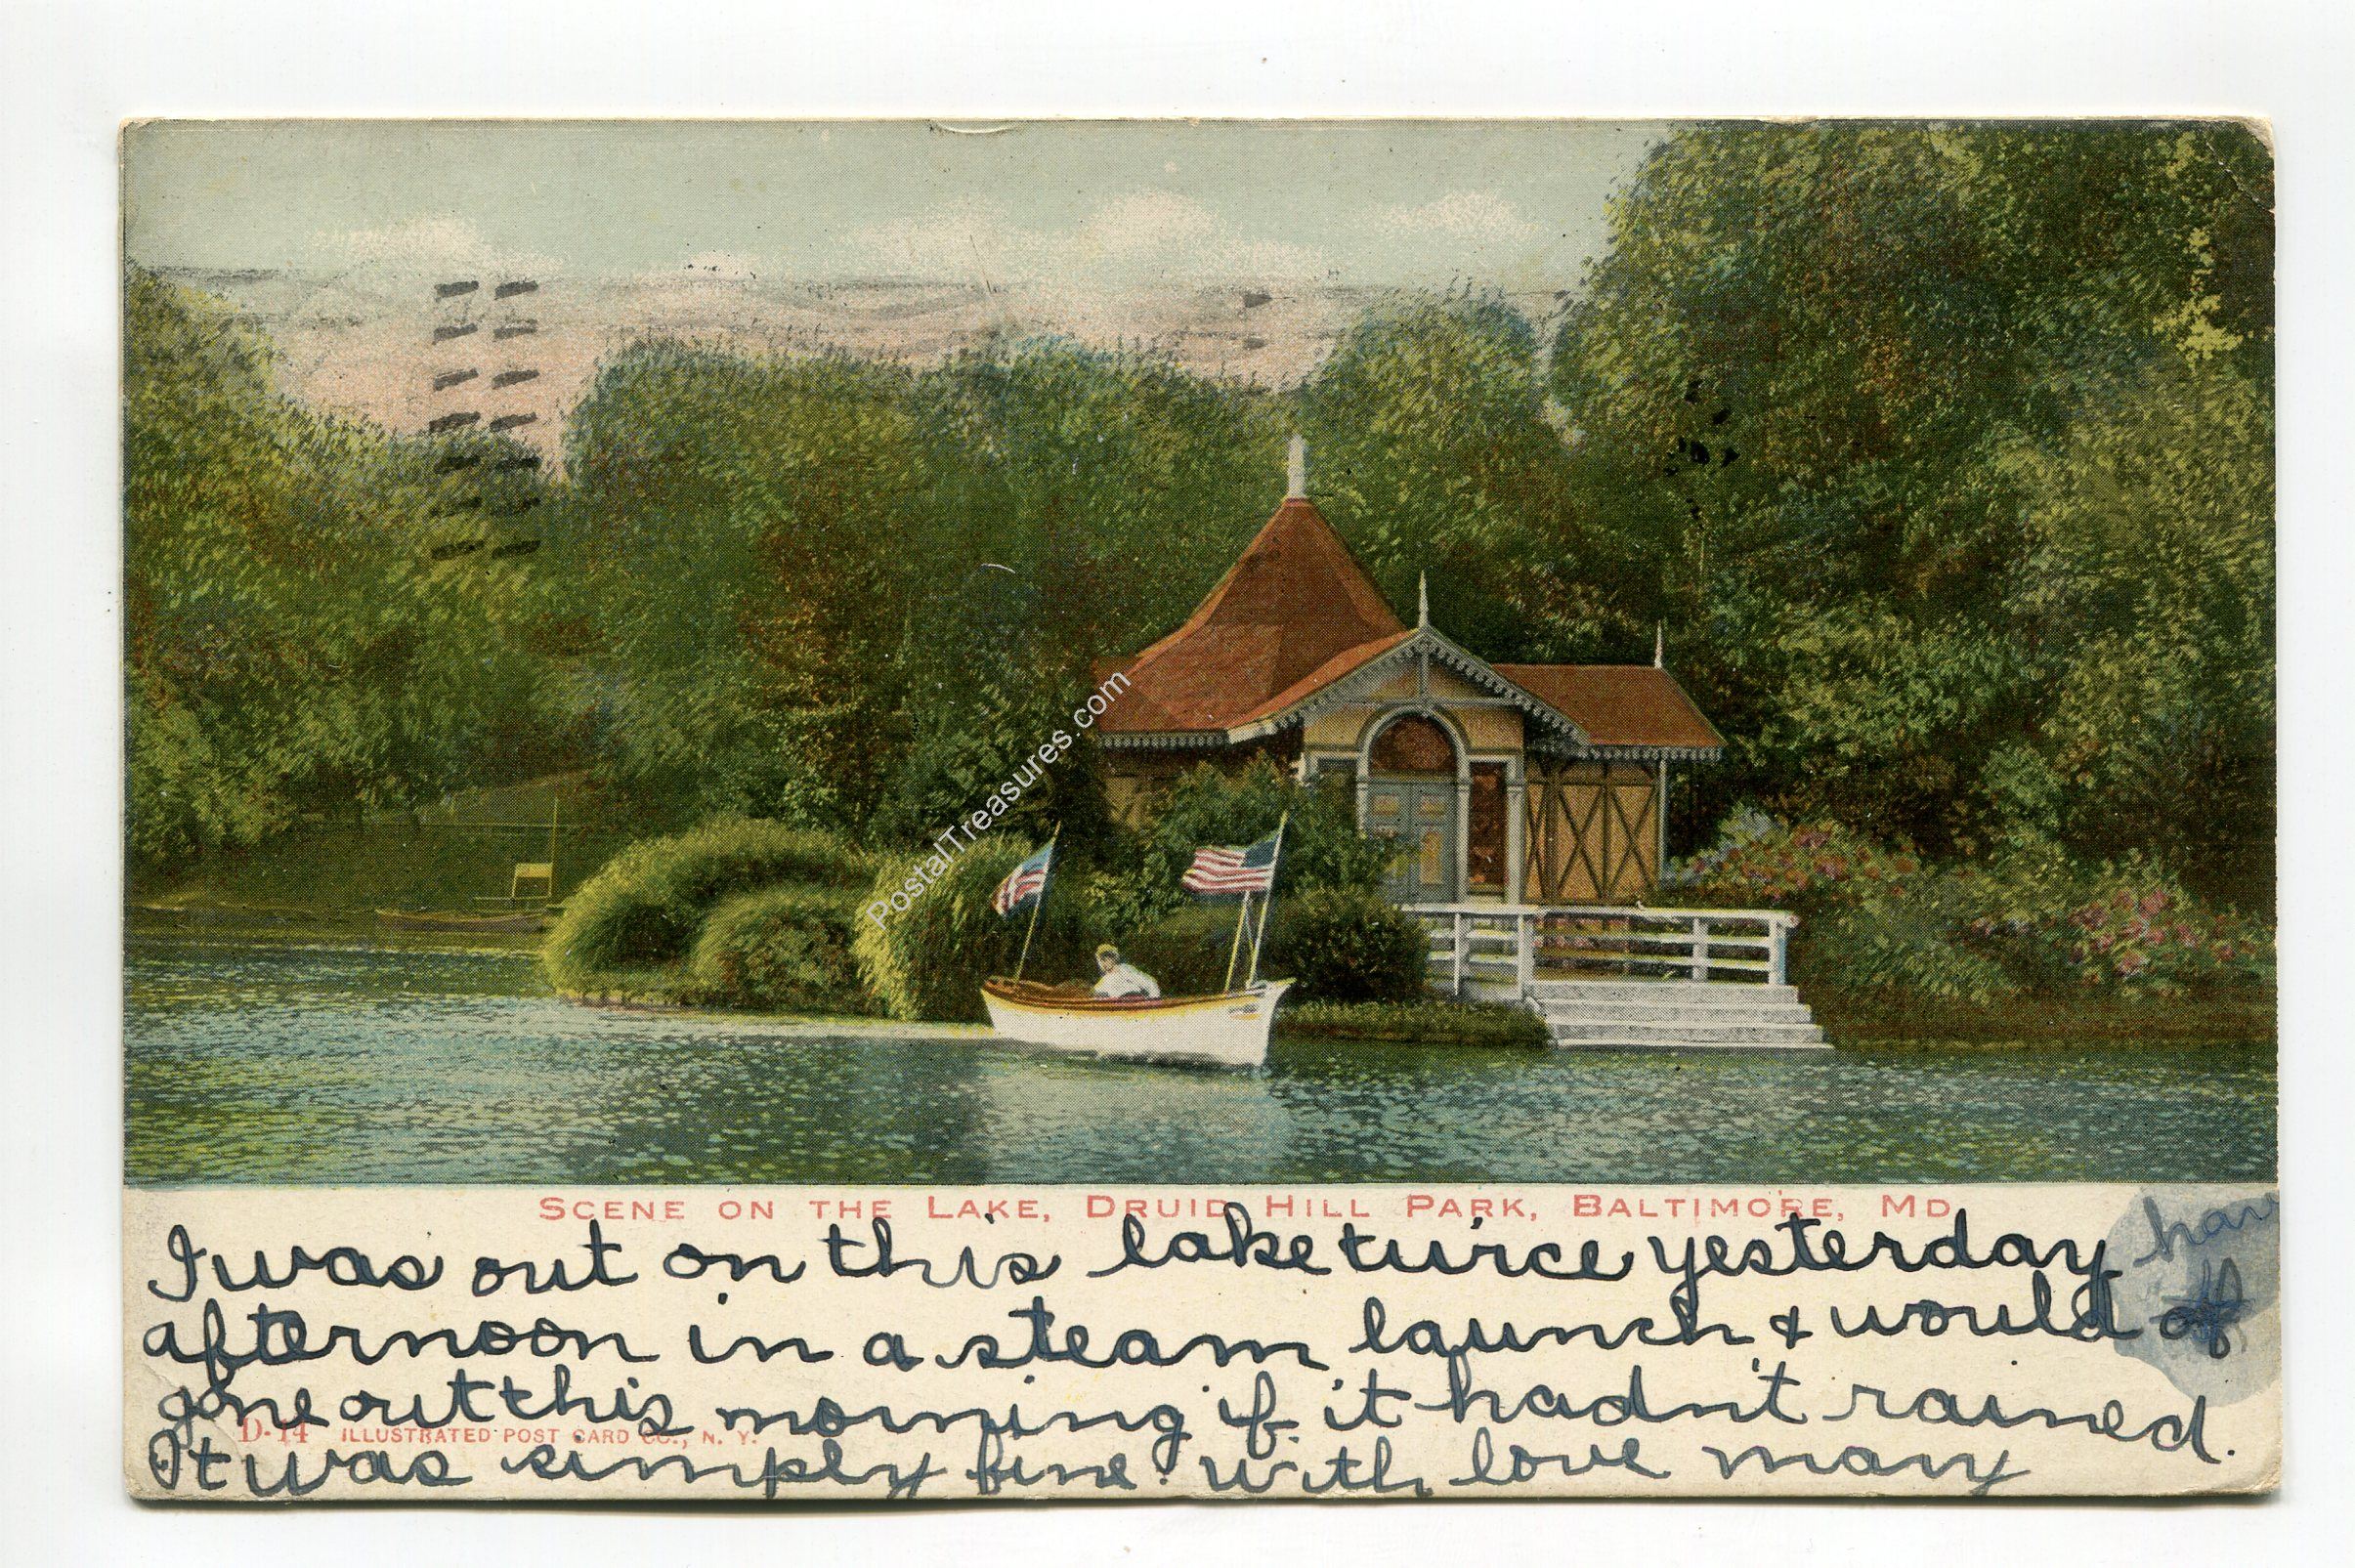 PostalTreasures.com
SCENE ON THE LAKE, DRUID HILL PARK, BALTIMORE, MD.
I was out on this lake twice yesterday hav
afternoon in a steam launch & would of
gone out this morning if it hadn't rained.
D-14 ILLUSTRATED POST CARD CO., N. Y.
It was simply fine. with love mary